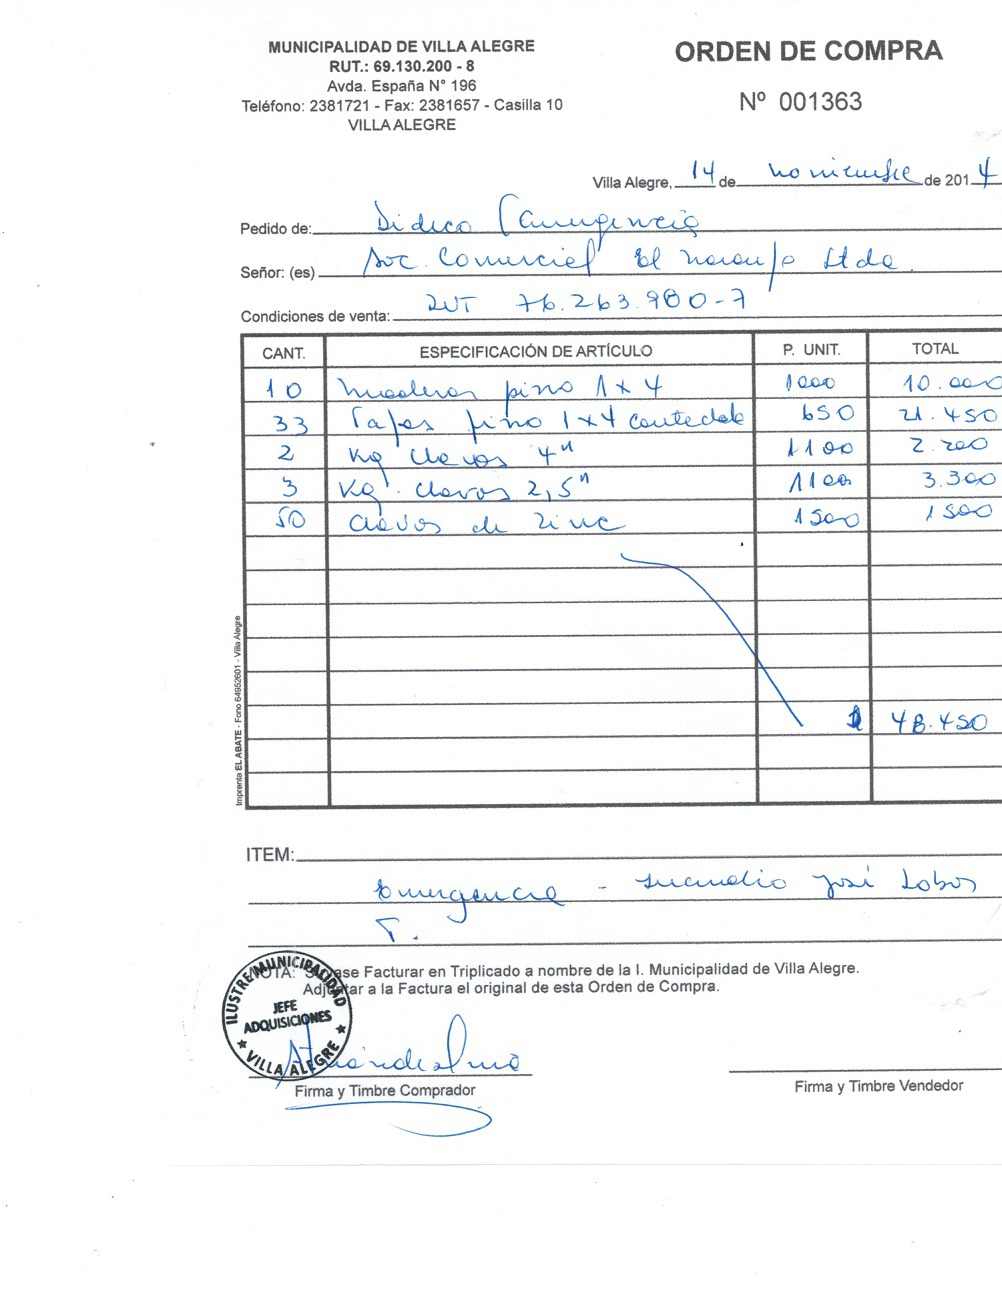 MUNICIPALIDAD DE VILLA ALEGRE
RUT.: 69.130.200 - 8
Avda. España N° 196
Teléfono: 2381721 - Fax: 2381657 - Casilla 10
VILLA ALEGRE
ORDEN DE COMPRA
Nº 001363
Villa Alegre, 14 de noviembre de 2014
Pedido de: Dideco (emergencia
Señor: (es) Soc. Comercial El naranjo Ltda.
Condiciones de venta: RUT 76.263.980-7
CANT. ESPECIFICACIÓN DE ARTÍCULO P. UNIT. TOTAL
10 maderas pino 1x4 1000 10.000
33 Tapas pino 1x4 650 21.450
2 Kg clavos 4" 1100 2.200
3 Kg. clavos 2,5" 1100 3.300
50 clavos de zinc 1500 1500
48.450
Imprenta EL ABATE - Fono 64952601 - Villa Alegre
ITEM:
Emergencia - Incendio José Lobos
T.
NOTA: Sírvase Facturar en Triplicado a nombre de la I. Municipalidad de Villa Alegre.
Adjuntar a la Factura el original de esta Orden de Compra.
ILUSTRE MUNICIPALIDAD
JEFE
ADQUISICIONES
VILLA ALEGRE
Firma y Timbre Comprador
Firma y Timbre Vendedor